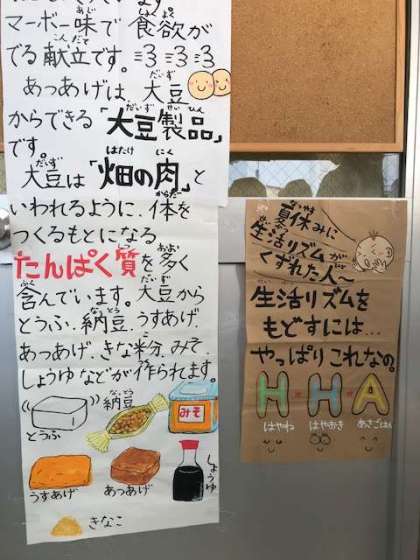 マーボー味で食欲が
でる献立です。
あつあげは、大豆
からできる「大豆製品」
です。
大豆は「畑の肉」と
いわれるように、体を
つくるもとになる
たんぱく質を多く
含んでいます。大豆から
とうふ、納豆、うすあげ、
あつあげ、きな粉、みそ、
しょうゆなどが作られます。
とうふ
納豆
みそ
うすあげ
あつあげ
しょうゆ
きなこ
夏休みに
生活リズムが
くずれた人~
生活リズムを
もどすには...
やっぱりこれなの。
H・H・A
はやね はやおき あさごはん